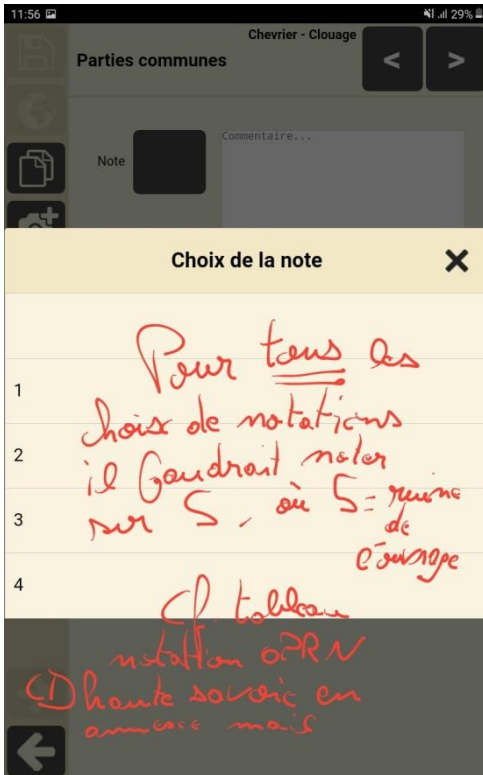 11:56 29%
Chevrier - Clouage
Parties communes
< >
Commentaire...
Note
Choix de la note
Pour tous les
1
choix de notations
2
il faudrait noter
sur 5, où 5 = ruine
3
de
l'ouvrage
4
Cf. tableau
notation OPRN
CD haute savoie en
annexe mais